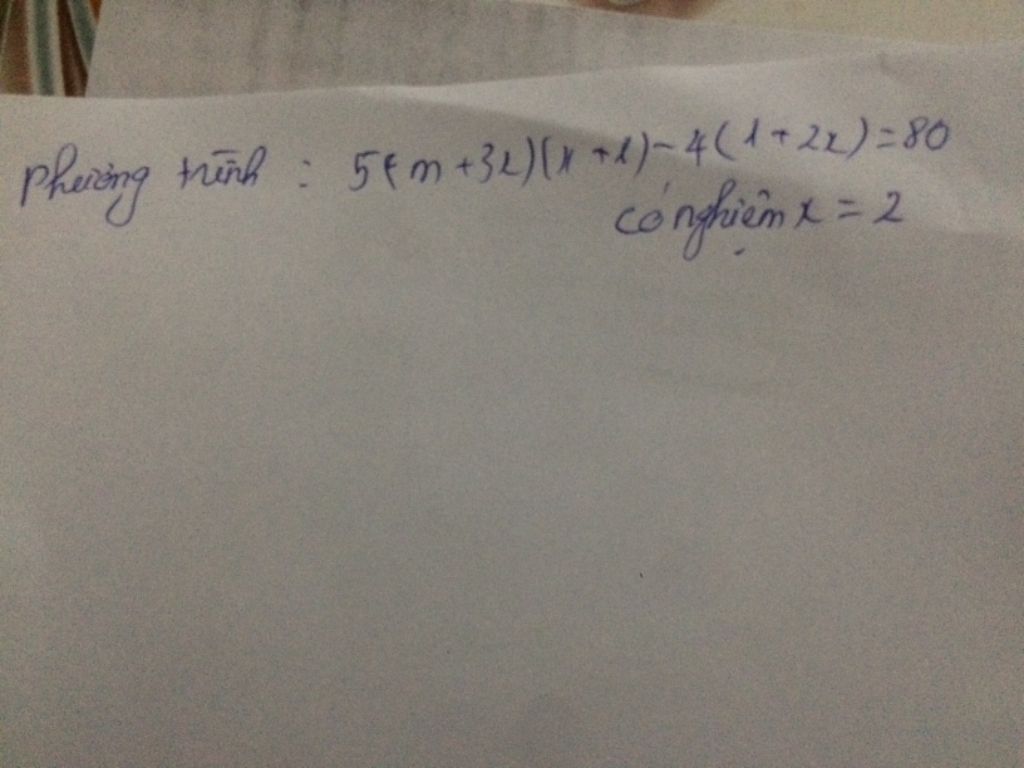 phương trình : 5(m+3x)(x+1)-4(1+2x)=80
có nghiệm x = 2